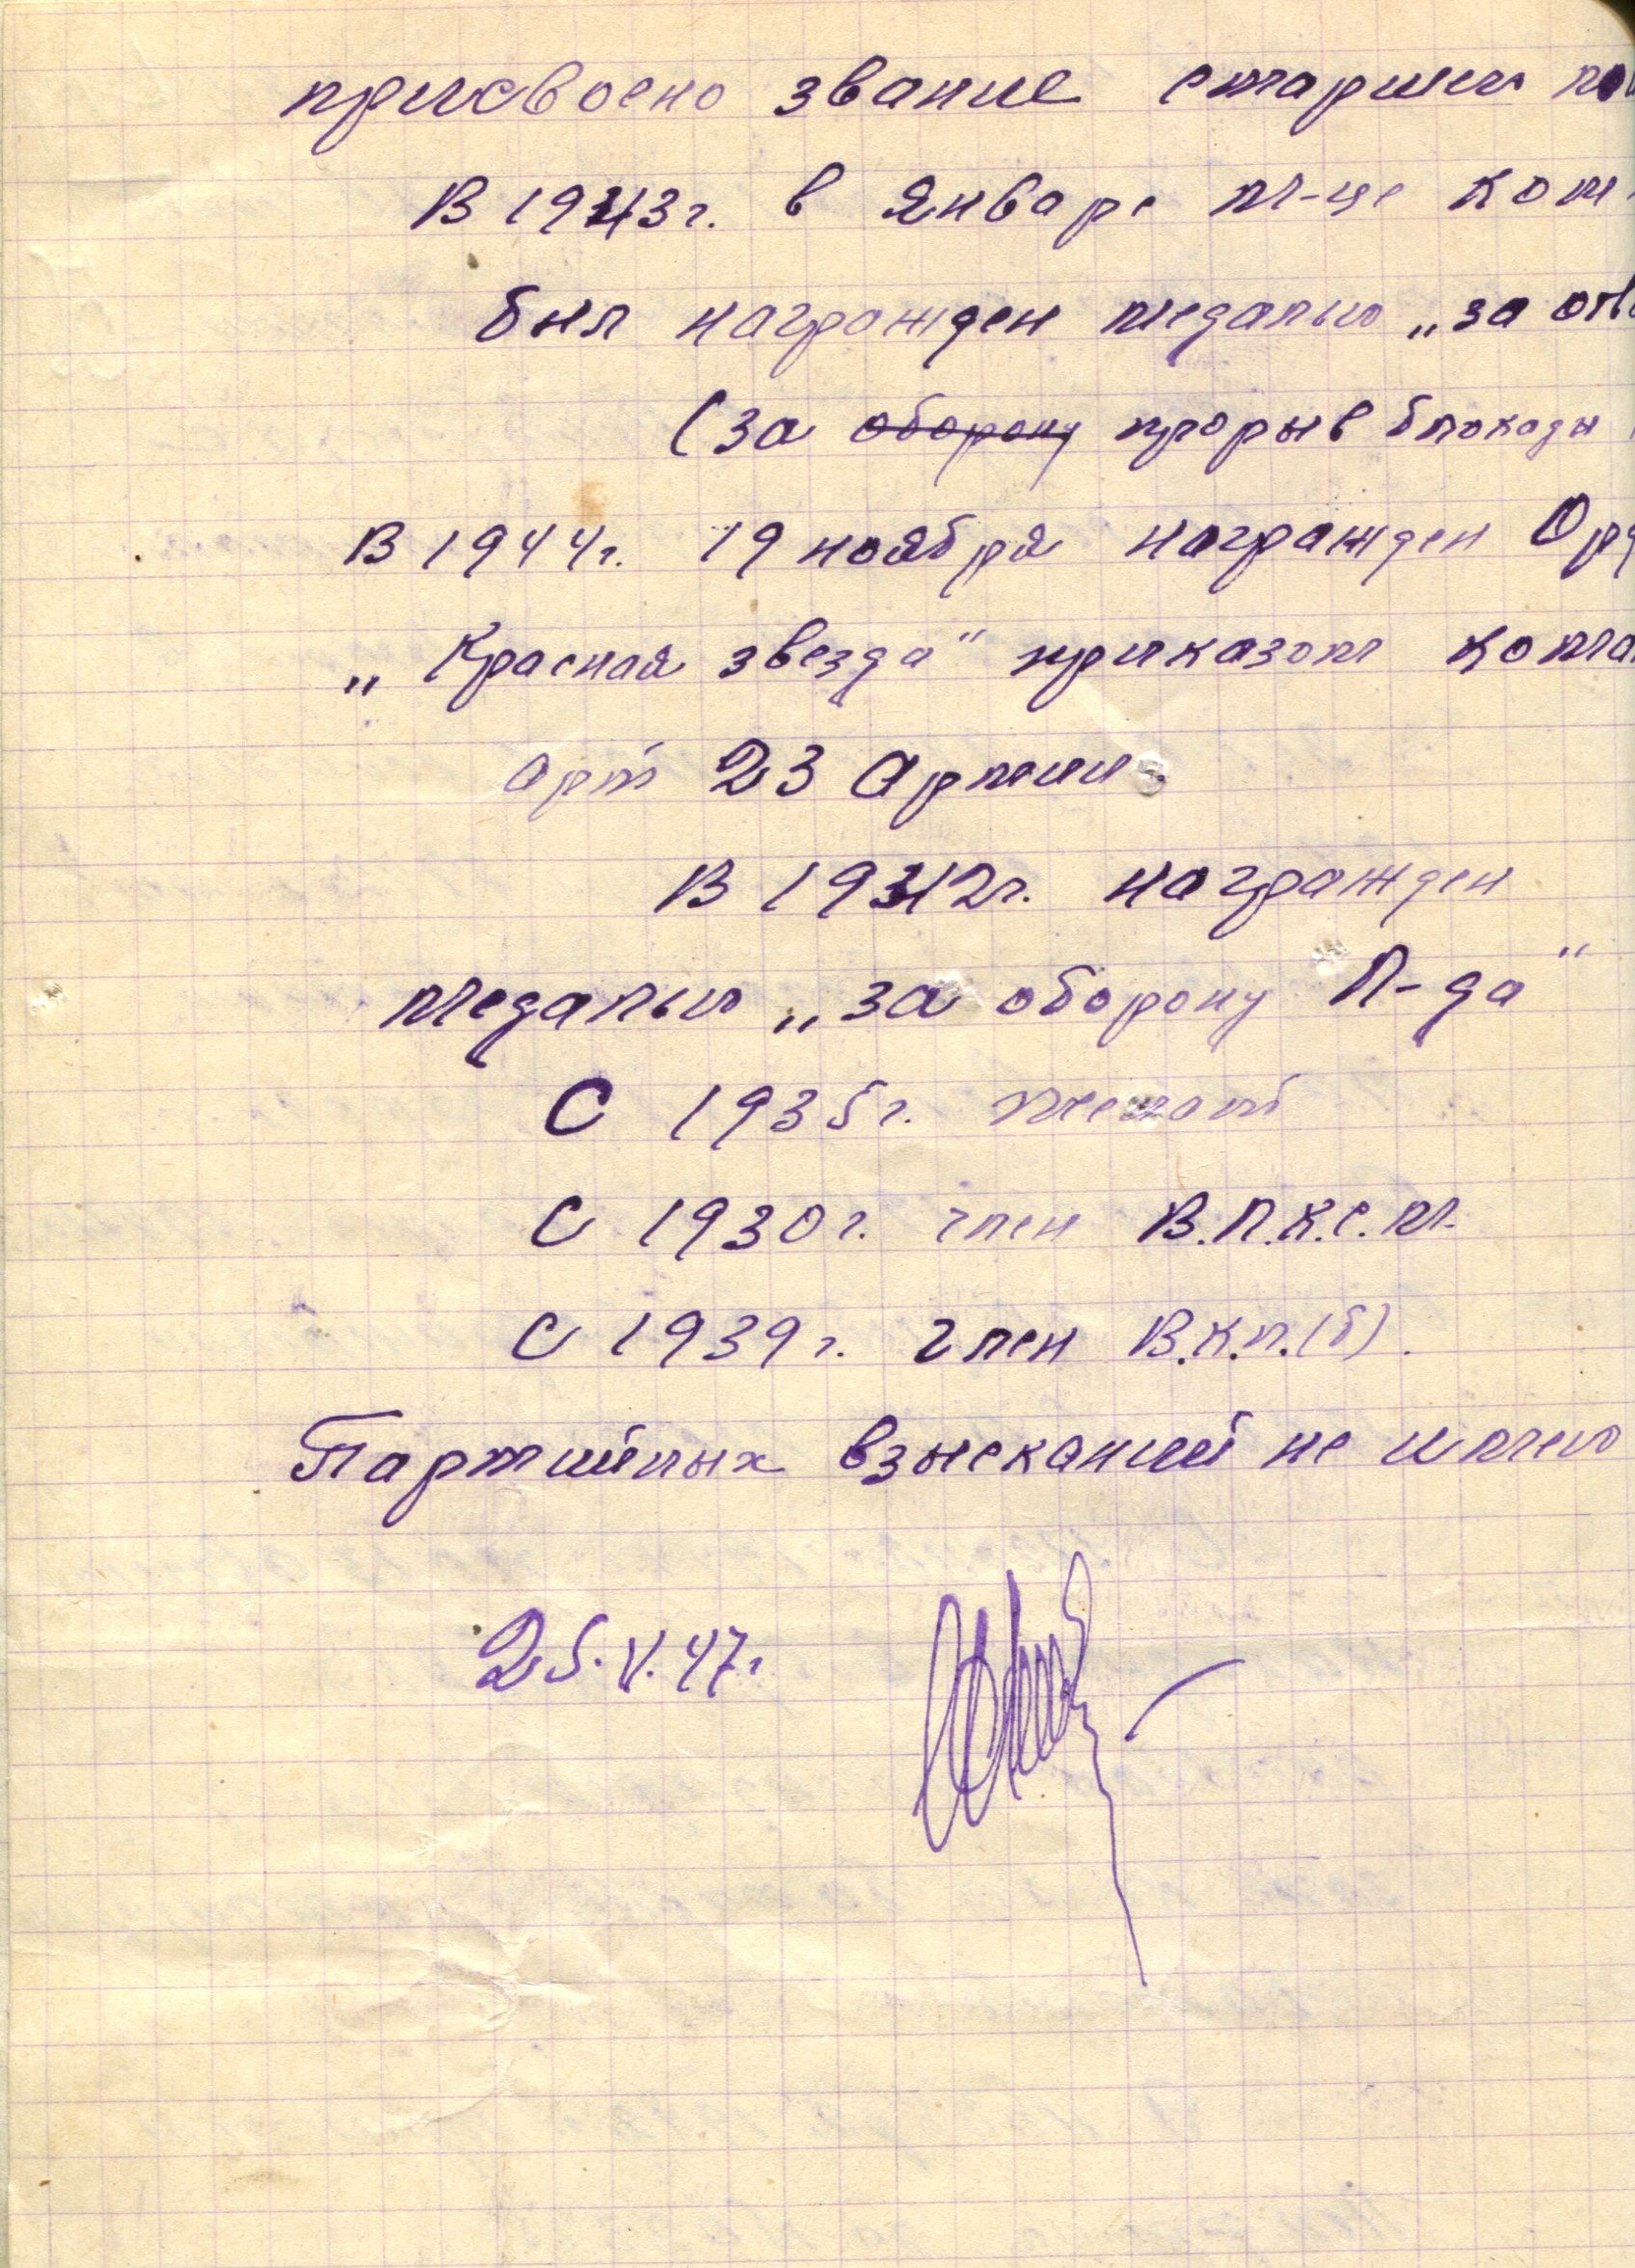 присвоено звание старшего
В 1943г. в январе м-це
был награжден медалью „за отв
(за оборону прорыв блокады
В 1944г. 19 ноября награжден Орд
„Красная звезда" приказом
арт 23 Армии.
В 1942г. награжден
медалью „за оборону Л-да"
С 1935г. женат
С 1930г. член В.Л.К.С.М.
С 1939г. член В.К.П.(б).
Партийных взысканий не имею
25.V.47г.